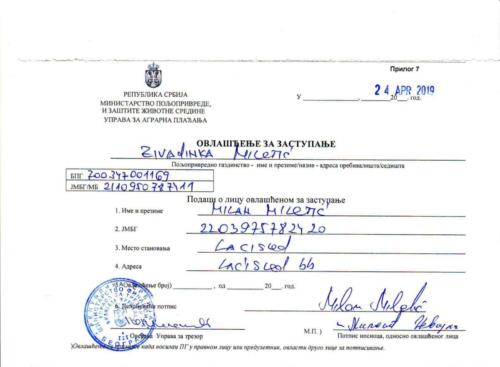 Прилог 7
РЕПУБЛИКА СРБИЈА
МИНИСТАРСТВО ПОЉОПРИВРЕДЕ,
И ЗАШТИТЕ ЖИВОТНЕ СРЕДИНЕ
УПРАВА ЗА АГРАРНА ПЛАЋАЊА
У 24 APR 2019 20__. год.
ОВЛАШЋЕЊЕ ЗА ЗАСТУПАЊЕ
ZIVADINKA MILETIĆ
Пољопривредно газдинство - име и презиме/назив - адреса пребивалишта/седишта
БПГ 700347001169
ЈМБГ/МБ 2110950787411
Подаци о лицу овлашћеном за заступање
1. Име и презиме MILAN MILETIĆ
2. ЈМБГ 2203975782420
3. Место становања Lacisled
4. Адреса Lacisled bb
број) , од 20__. год.
потпис
Управа за трезор
М.П.) Потпис носиоца, односно овлашћеног лица
ПГ у правном лицу или предузетник, области друго лице за потписивање.